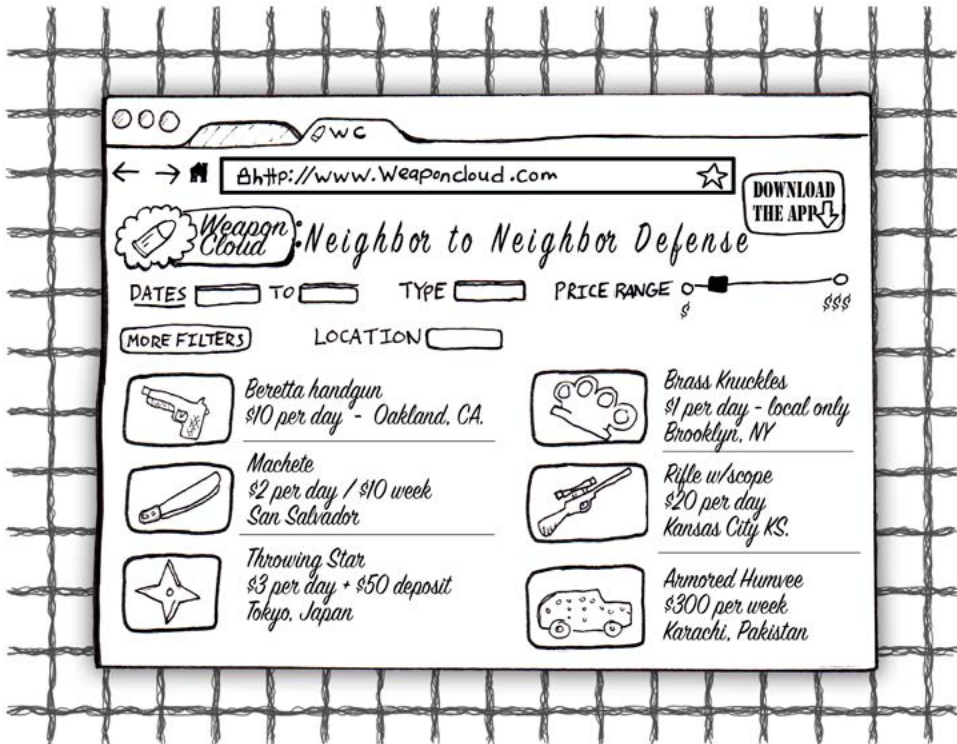 WC
http://www.Weaponcloud.com
DOWNLOAD
THE APP
Weapon
Cloud
: Neighbor to Neighbor Defense
DATES TO TYPE PRICE RANGE
$ $$$
MORE FILTERS LOCATION
Beretta handgun
$10 per day - Oakland, CA.
Machete
$2 per day / $10 week
San Salvador
Throwing Star
$3 per day + $50 deposit
Tokyo, Japan
Brass Knuckles
$1 per day - local only
Brooklyn, NY
Rifle w/scope
$20 per day
Kansas City KS.
Armored Humvee
$300 per week
Karachi, Pakistan